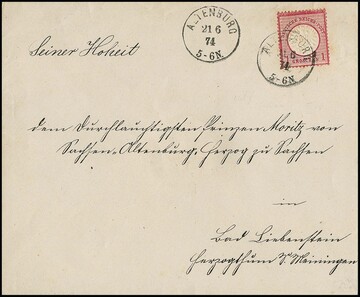 ALTENBURG
21 6
74
5-6N.
1
74
5-6N.
Seiner Hoheit
dem Durchlauchtigsten Prinzen Moritz von
Sachsen-Altenburg, Herzog zu Sachsen
in
Bad Liebenstein
Herzogthum S. Meiningen